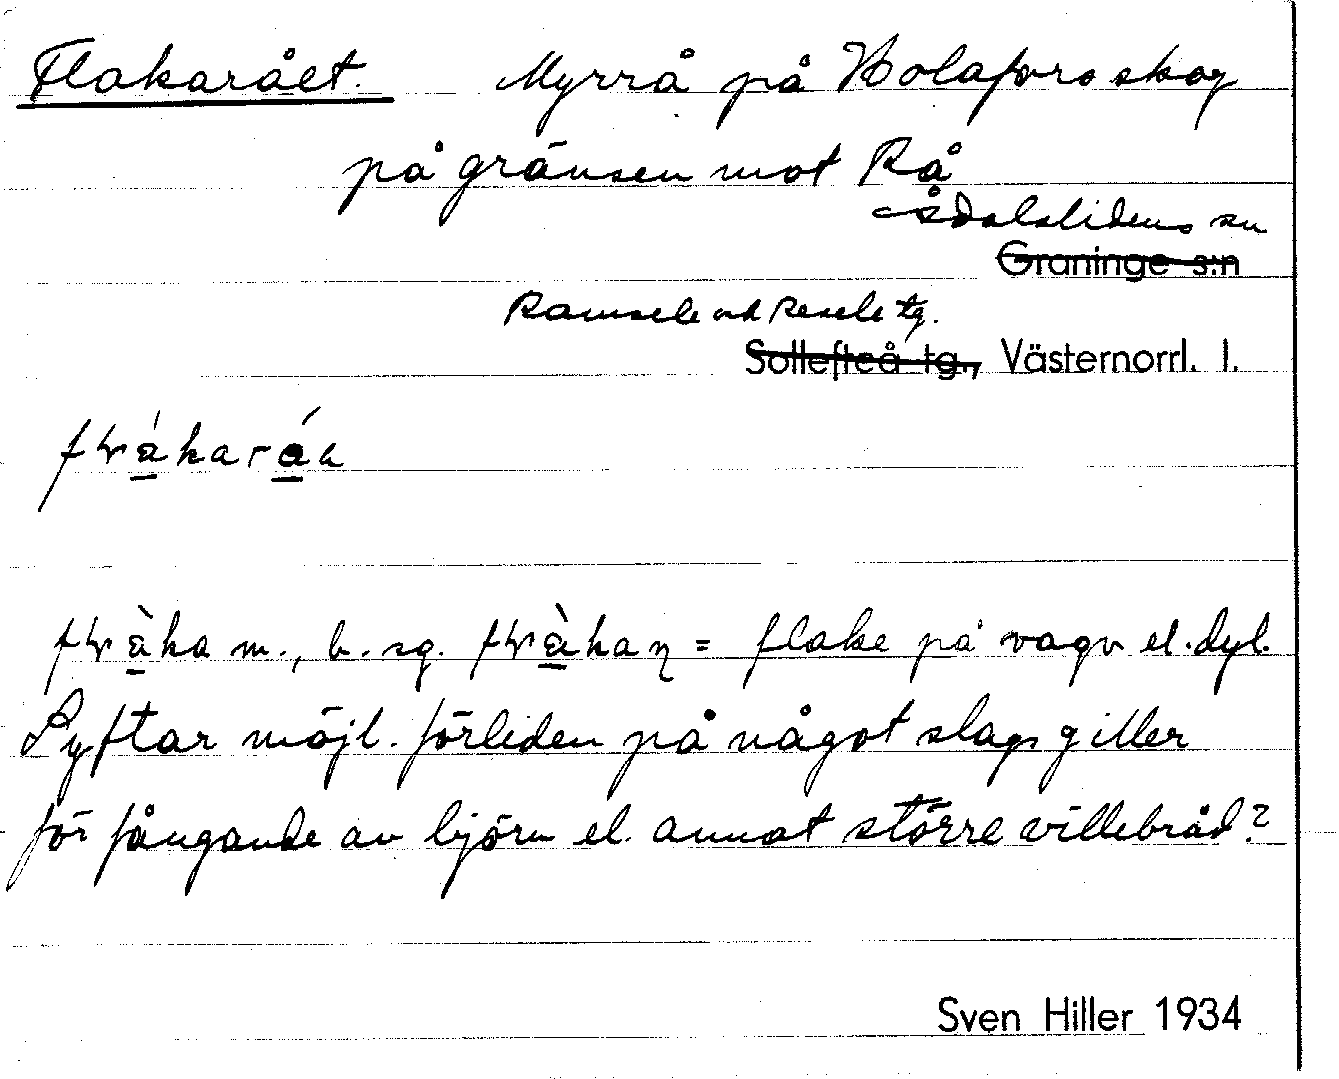 Flakarået. Myrrå på Holafors skog
på gränsen mot Rå
Ådalslidens sn
Graninge s:n
Ramsele och Resele tg.
Sollefteå tg., Västernorrl. l.
m., b. sg. = flake på vagn el. dyl.
Syftar möjl. förleden på något slags giller
för fångande av björn el. annat större villebråd?
Sven Hiller 1934